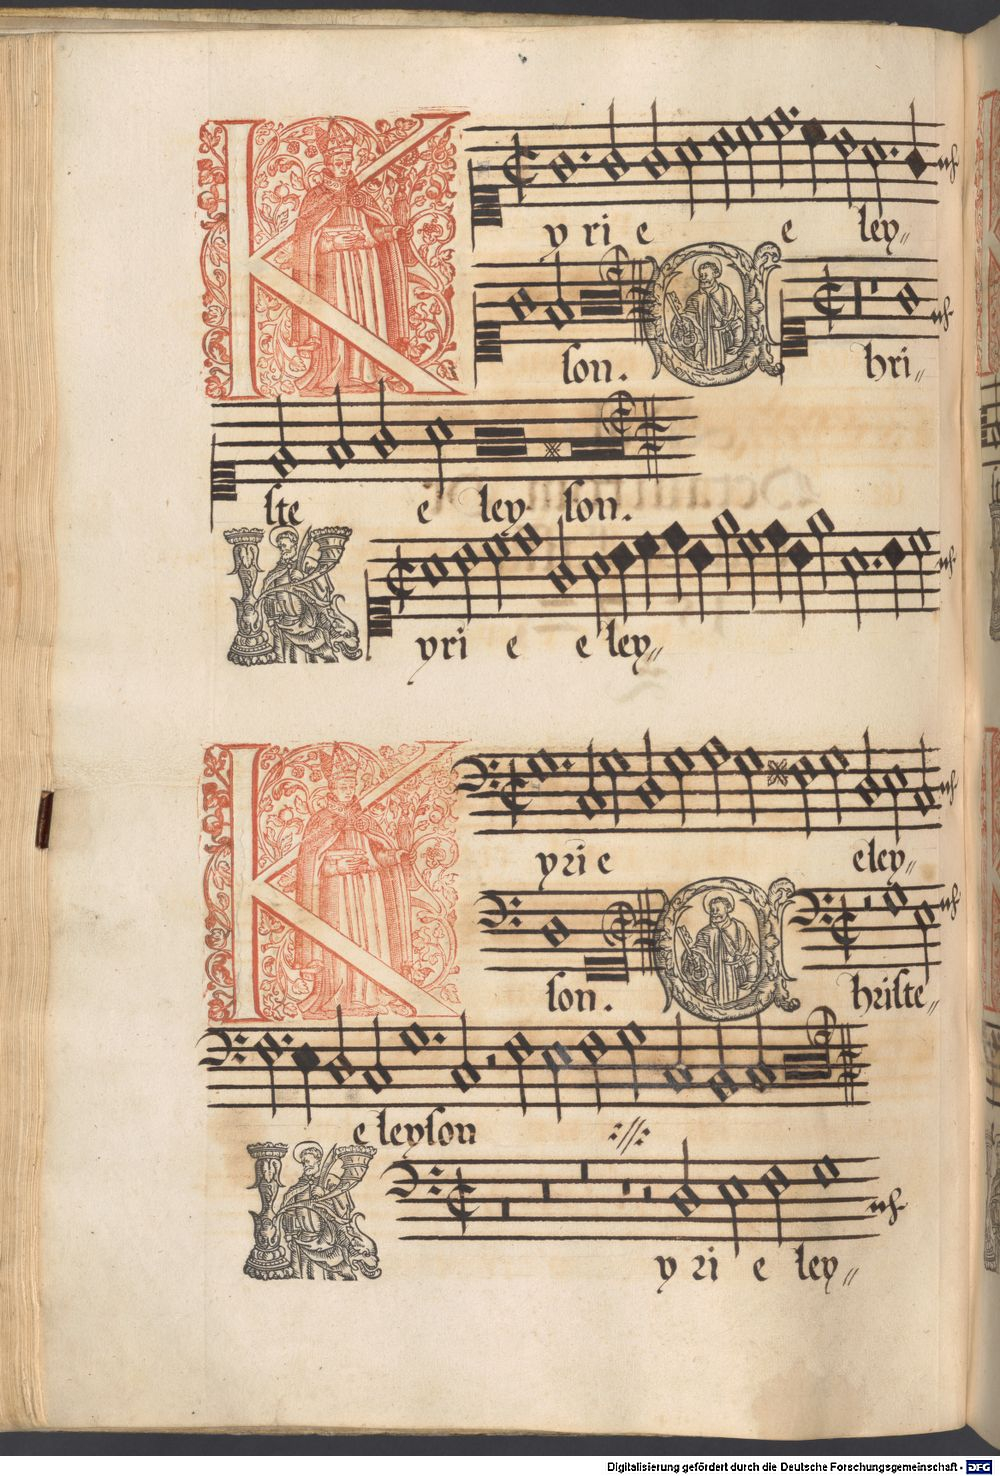 K yrie e ley
son. C hri
ste e ley son.
K yri e e ley
K yrie eley
son. C hriste
e leyson
K yri e ley
Digitalisierung gefördert durch die Deutsche Forschungsgemeinschaft - DFG